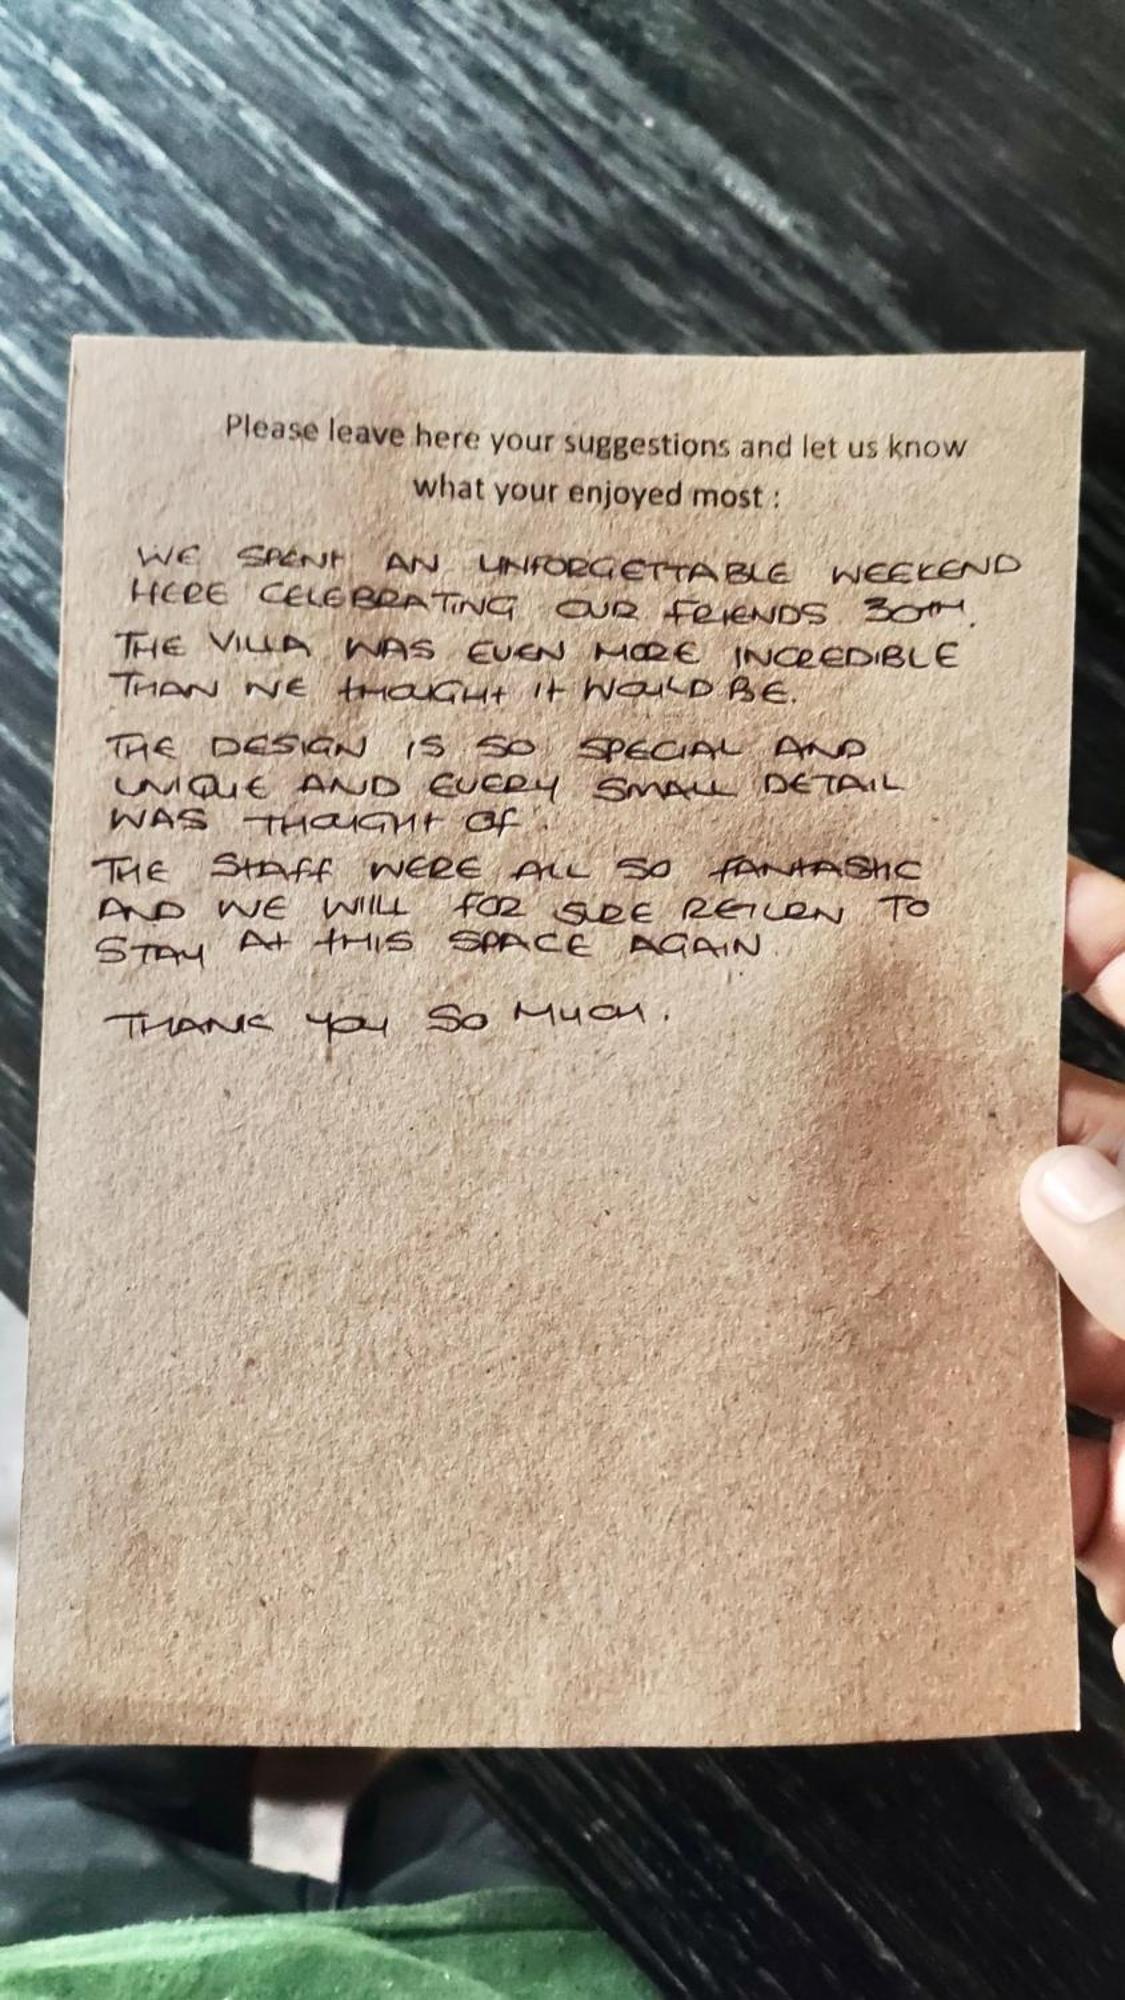 Please leave here your suggestions and let us know
what your enjoyed most :
WE SPENT AN UNFORGETTABLE WEEKEND
HERE CELEBRATING OUR FRIENDS 30TH.
THE VILLA WAS EVEN MORE INCREDIBLE
THAN WE THOUGHT IT WOULD BE.
THE DESIGN IS SO SPECIAL AND
UNIQUE AND EVERY SMALL DETAIL
WAS THOUGHT OF.
THE STAFF WERE ALL SO FANTASTIC
AND WE WILL FOR SURE RETURN TO
STAY AT THIS SPACE AGAIN.
THANK YOU SO MUCH.